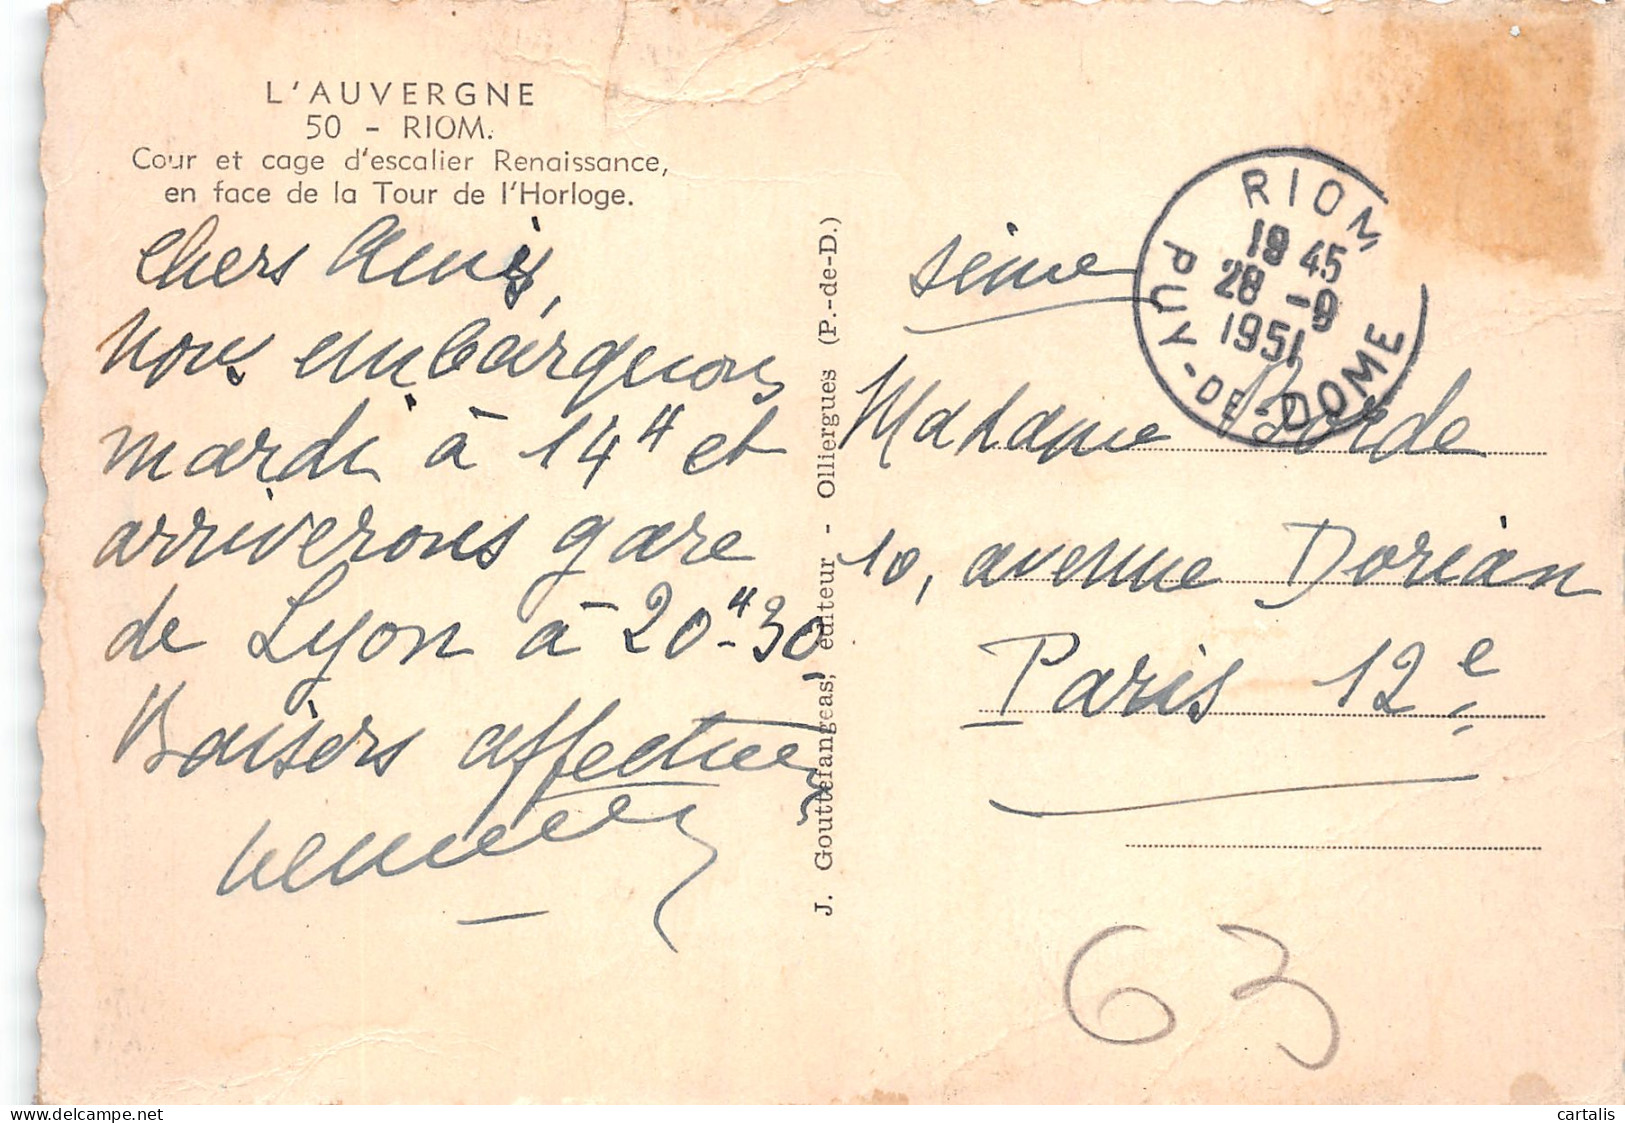 L'AUVERGNE
50 - RIOM.
Cour et cage d'escalier Renaissance,
en face de la Tour de l'Horloge.
Chers Amis,
nous embarquons
mardi à 14H et
arriverons gare
de Lyon à 20H-30
Baisers affectueux
J. Gouttefangeas, éditeur - Olliergues (P.-de-D.)
RIOM
19 45
28 -9
1951
PUY-DE-DOME
Seine
Madame Borde
10, avenue Dorian
Paris 12e
63
cartalis